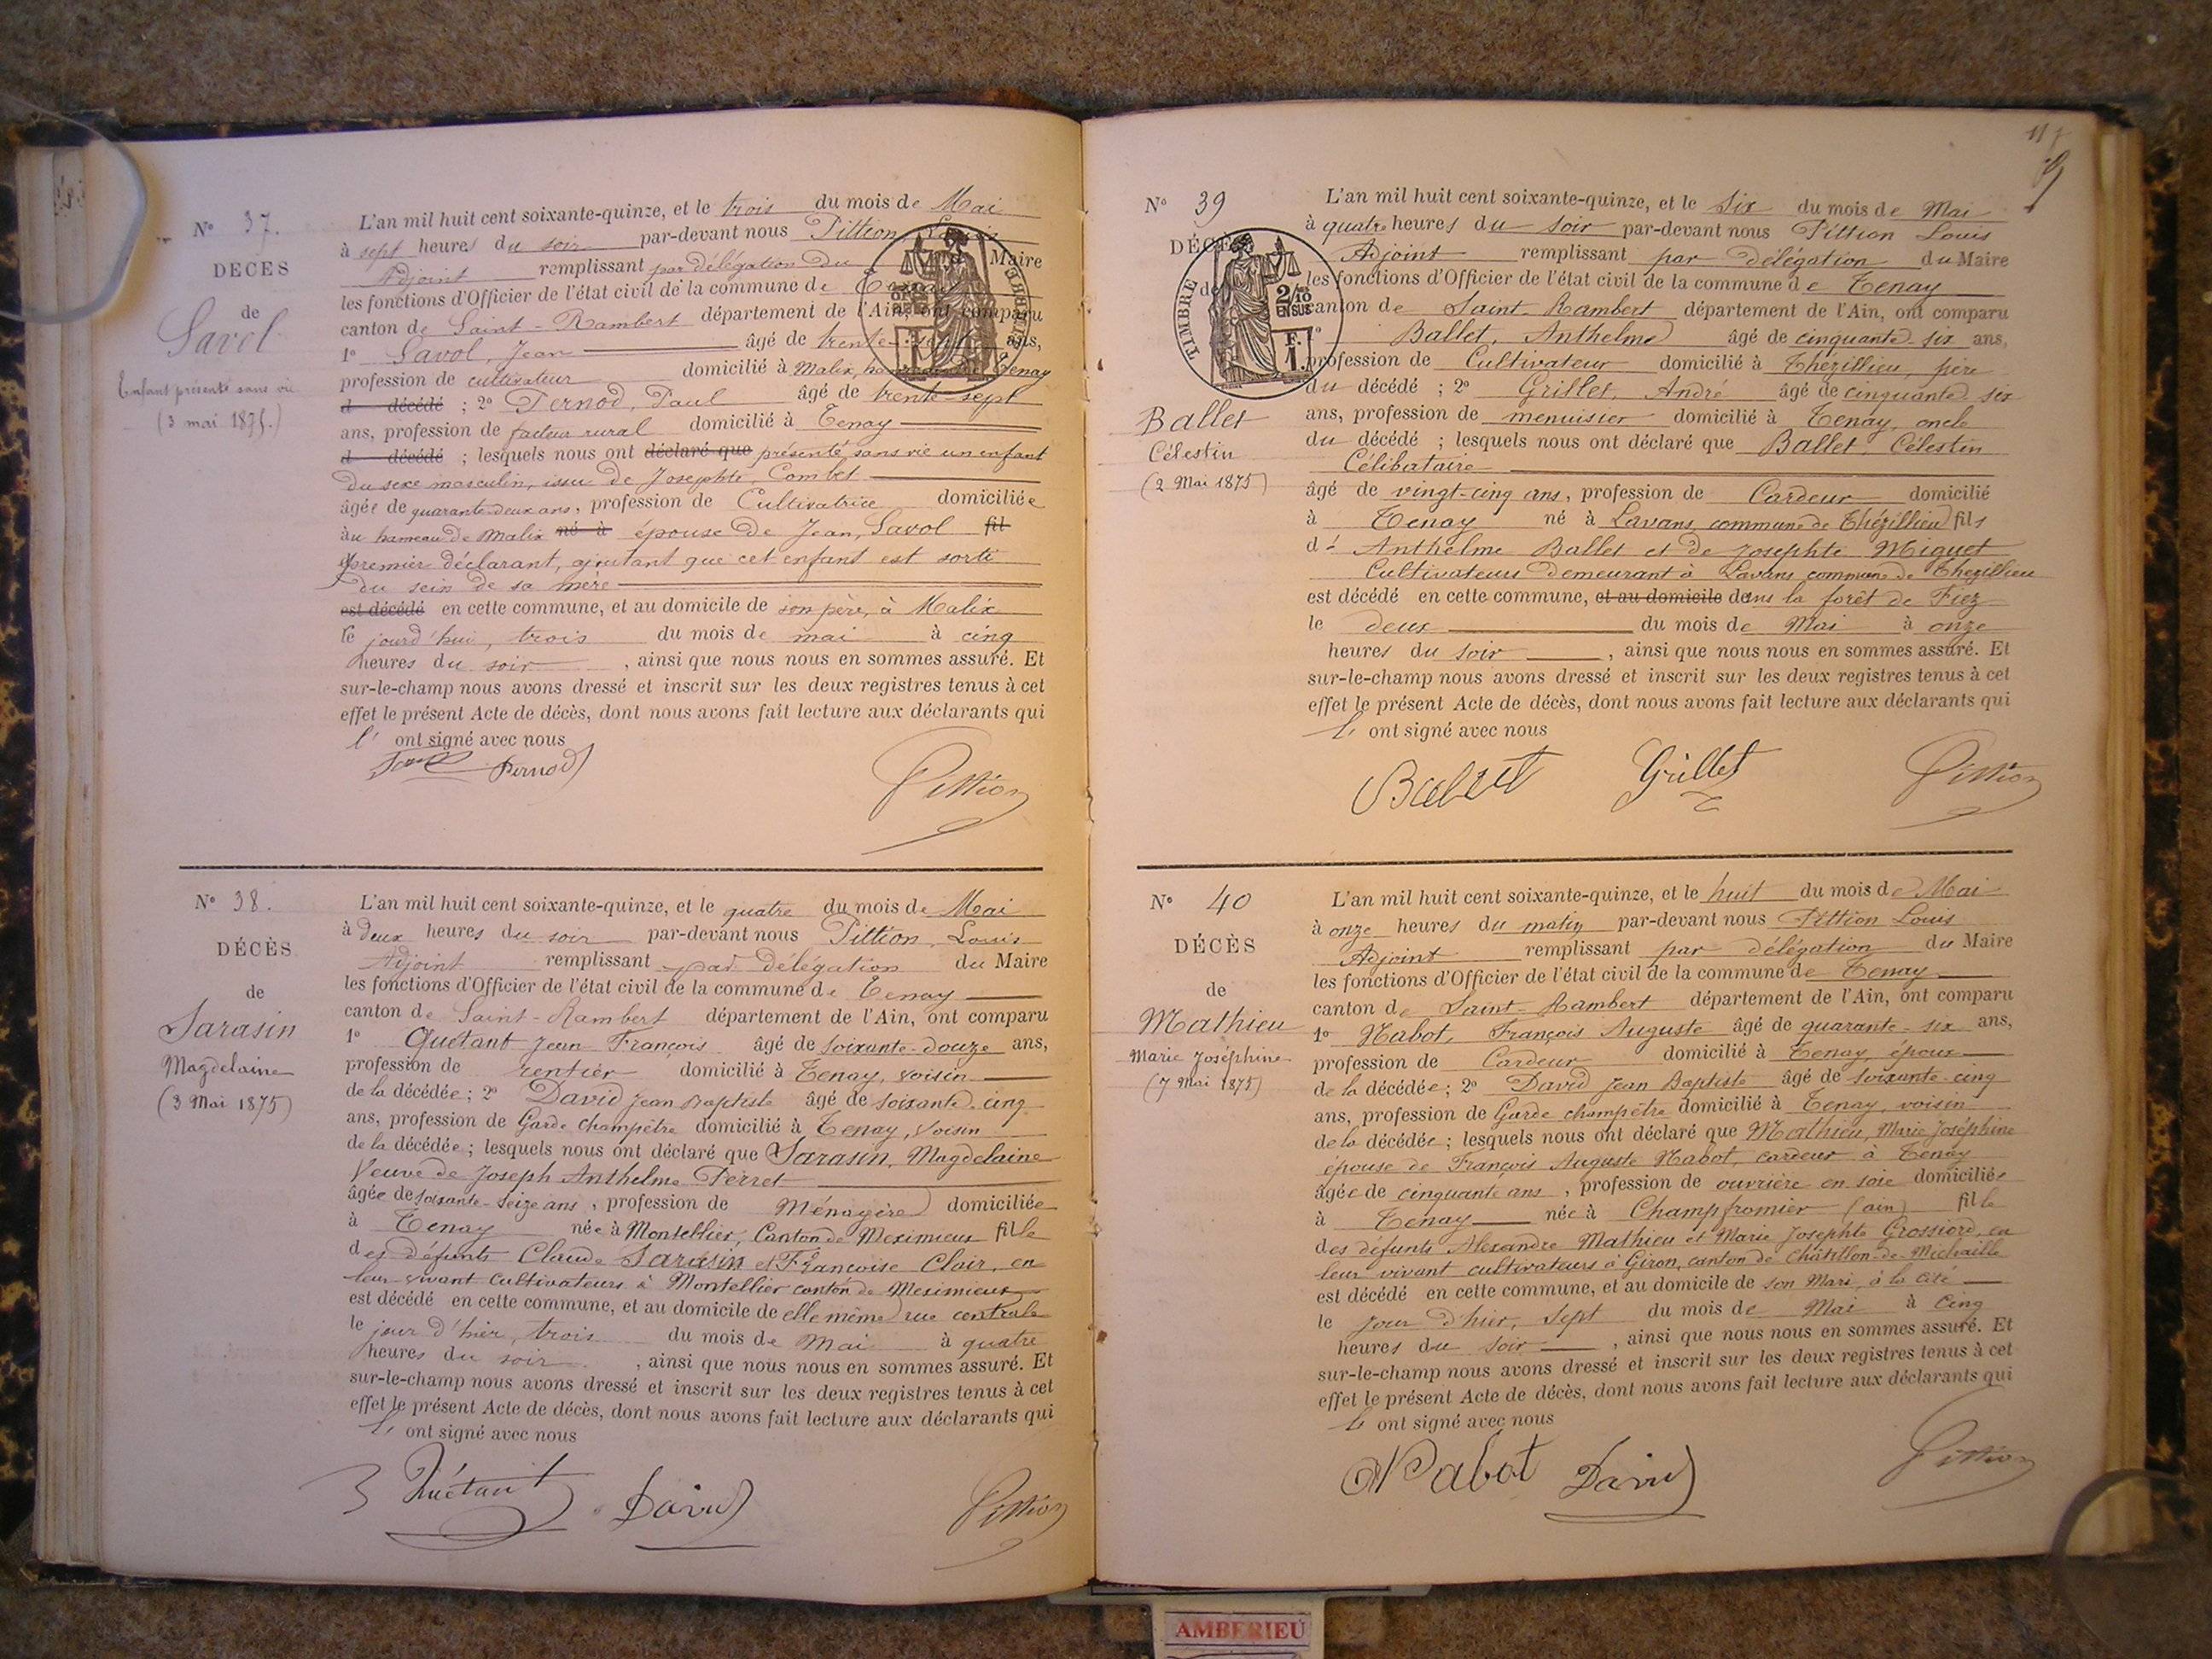 N° 37.
DÉCÈS
de
Savol
Enfant présenté sans vie
(3 mai 1875.)
L'an mil huit cent soixante-quinze, et le trois du mois de Mai
à sept heures du soir par-devant nous Pittion, Louis
Adjoint remplissant par délégation du Maire
les fonctions d'Officier de l'état civil de la commune de Tenay
canton de Saint-Rambert département de l'Ain, ont comparu
1° Savol, Jean âgé de trente ans,
profession de cultivateur domicilié à Malix, Tenay
d décédé ; 2° Pernod, Paul âgé de trente-sept
ans, profession de facteur rural domicilié à Tenay
d décédé ; lesquels nous ont déclaré que présenté sans vie un enfant
du sexe masculin, issu de Josephte, Combet
âgée de quarante deux ans, profession de Cultivatrice domiciliée
au hameau de Malix né à épouse de Jean, Savol fil
premier déclarant, ajoutant que cet enfant est sorti
du sein de sa mère
est décédé en cette commune, et au domicile de son père, à Malix
le jourd'hui, trois du mois de mai à cinq
heures du soir, ainsi que nous nous en sommes assuré. Et
sur-le-champ nous avons dressé et inscrit sur les deux registres tenus à cet
effet le présent Acte de décès, dont nous avons fait lecture aux déclarants qui
l' ont signé avec nous
Pernod
Pittion
N° 38.
DÉCÈS
de
Sarasin
Magdelaine
(3 Mai 1875)
L'an mil huit cent soixante-quinze, et le quatre du mois de Mai
à deux heures du soir par-devant nous Pittion, Louis
Adjoint remplissant par délégation du Maire
les fonctions d'Officier de l'état civil de la commune de Tenay
canton de Saint-Rambert département de l'Ain, ont comparu
1° Quétant Jean François âgé de soixante-douze ans,
profession de rentier domicilié à Tenay, voisin
de la décédée ; 2° David Jean Baptiste âgé de soixante-cinq
ans, profession de Garde champêtre domicilié à Tenay, voisin
de la décédée ; lesquels nous ont déclaré que Sarasin, Magdelaine
Veuve de Joseph Anthelme Perret
âgée de soixante-seize ans, profession de Ménagère domiciliée
à Tenay née à Montellier, Canton de Meximieux fille
des défunts Claude Sarasin et Françoise Clair, en
leur vivant Cultivateurs à Montellier canton de Meximieux
est décédé en cette commune, et au domicile de elle même rue centrale
le jour d'hier, trois du mois de Mai à quatre
heures du soir, ainsi que nous nous en sommes assuré. Et
sur-le-champ nous avons dressé et inscrit sur les deux registres tenus à cet
effet le présent Acte de décès, dont nous avons fait lecture aux déclarants qui
l' ont signé avec nous
Quétant David Pittion
N° 39
DÉCÈS
de
TIMBRE
2/10
EN SUS
F.
1.
Ballet
Célestin
(2 Mai 1875)
L'an mil huit cent soixante-quinze, et le six du mois de Mai
à quatre heures du soir par-devant nous Pittion Louis
Adjoint remplissant par délégation du Maire
les fonctions d'Officier de l'état civil de la commune de Tenay
canton de Saint-Rambert département de l'Ain, ont comparu
1° Ballet, Anthelme âgé de cinquante-six ans,
profession de Cultivateur domicilié à Thézillieu, père
du décédé ; 2° Grillet, André âgé de cinquante-six
ans, profession de menuisier domicilié à Tenay, oncle
du décédé ; lesquels nous ont déclaré que Ballet, Célestin
Célibataire
âgé de vingt-cinq ans, profession de Cardeur domicilié
à Tenay né à Lavans, commune de Thézillieu fils
d' Anthelme Ballet et de Josephte Miguet
Cultivateurs demeurant à Lavans commune de Thezillieu
est décédé en cette commune, et au domicile dans la forêt de Fiez
le deux du mois de Mai à onze
heures du soir, ainsi que nous nous en sommes assuré. Et
sur-le-champ nous avons dressé et inscrit sur les deux registres tenus à cet
effet le présent Acte de décès, dont nous avons fait lecture aux déclarants qui
l' ont signé avec nous
Ballet Grillet Pittion
N° 40
DÉCÈS
de
Mathieu
Marie Joséphine
(7 Mai 1875)
L'an mil huit cent soixante-quinze, et le huit du mois de Mai
à onze heures du matin par-devant nous Pittion Louis
Adjoint remplissant par délégation du Maire
les fonctions d'Officier de l'état civil de la commune de Tenay
canton de Saint-Rambert département de l'Ain, ont comparu
1° Nabot, François Auguste âgé de quarante-six ans,
profession de Cardeur domicilié à Tenay, époux
de la décédée ; 2° David Jean Baptiste âgé de soixante-cinq
ans, profession de Garde champêtre domicilié à Tenay, voisin
de la décédée ; lesquels nous ont déclaré que Mathieu, Marie Joséphine
épouse de François Auguste Nabot, cardeur à Tenay
âgée de cinquante ans, profession de ouvrière en soie domiciliée
à Tenay née à Champfromier (ain) fille
des défunts Alexandre Mathieu et Marie Josephte Grossiord, en
leur vivant cultivateurs à Giron, canton de Châtillon-de-Michaille
est décédé en cette commune, et au domicile de son Mari, à la cité
le jour d'hier, sept du mois de Mai à cinq
heures du soir, ainsi que nous nous en sommes assuré. Et
sur-le-champ nous avons dressé et inscrit sur les deux registres tenus à cet
effet le présent Acte de décès, dont nous avons fait lecture aux déclarants qui
l' ont signé avec nous
Nabot David Pittion
AMBERIEU